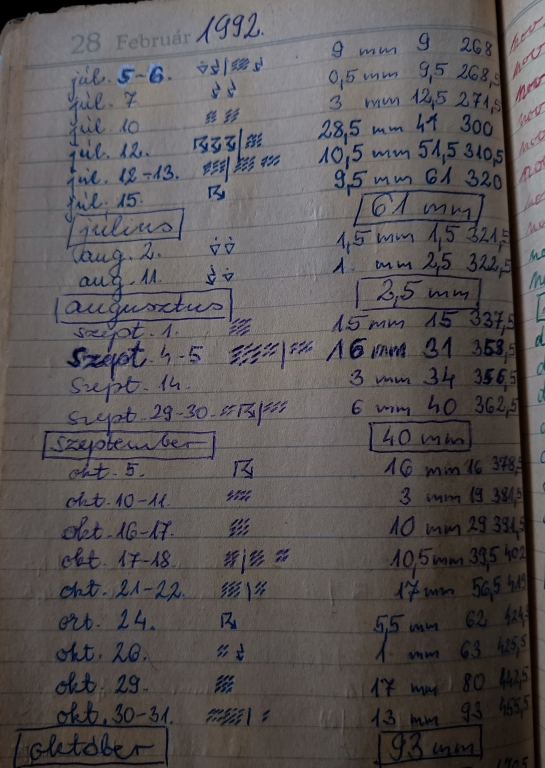 28 Február 1992.
júl. 5-6. 9 mm 9 268
júl. 7 0,5 mm 9,5 268,5
júl. 10 3 mm 12,5 271,5
júl. 12. 28,5 mm 41 300
júl. 12-13. 10,5 mm 51,5 310,5
júl. 15. 9,5 mm 61 320
július 61 mm
aug. 2. 1,5 mm 1,5 321,5
aug. 11. 1 mm 2,5 322,5
augusztus 2,5 mm
szept. 1. 15 mm 15 337,5
szept. 4-5 16 mm 31 353,5
szept. 14. 3 mm 34 356,5
szept. 29-30. 6 mm 40 362,5
szeptember 40 mm
okt. 5. 16 mm 16 378,5
okt. 10-11. 3 mm 19 381,5
okt. 16-17. 10 mm 29 391,5
okt. 17-18. 10,5 mm 39,5 402
okt. 21-22. 17 mm 56,5 419
okt. 24. 5,5 mm 62 424,5
okt. 26. 1 mm 63 425,5
okt. 29. 17 mm 80 442,5
okt. 30-31. 13 mm 93 455,5
október 93 mm